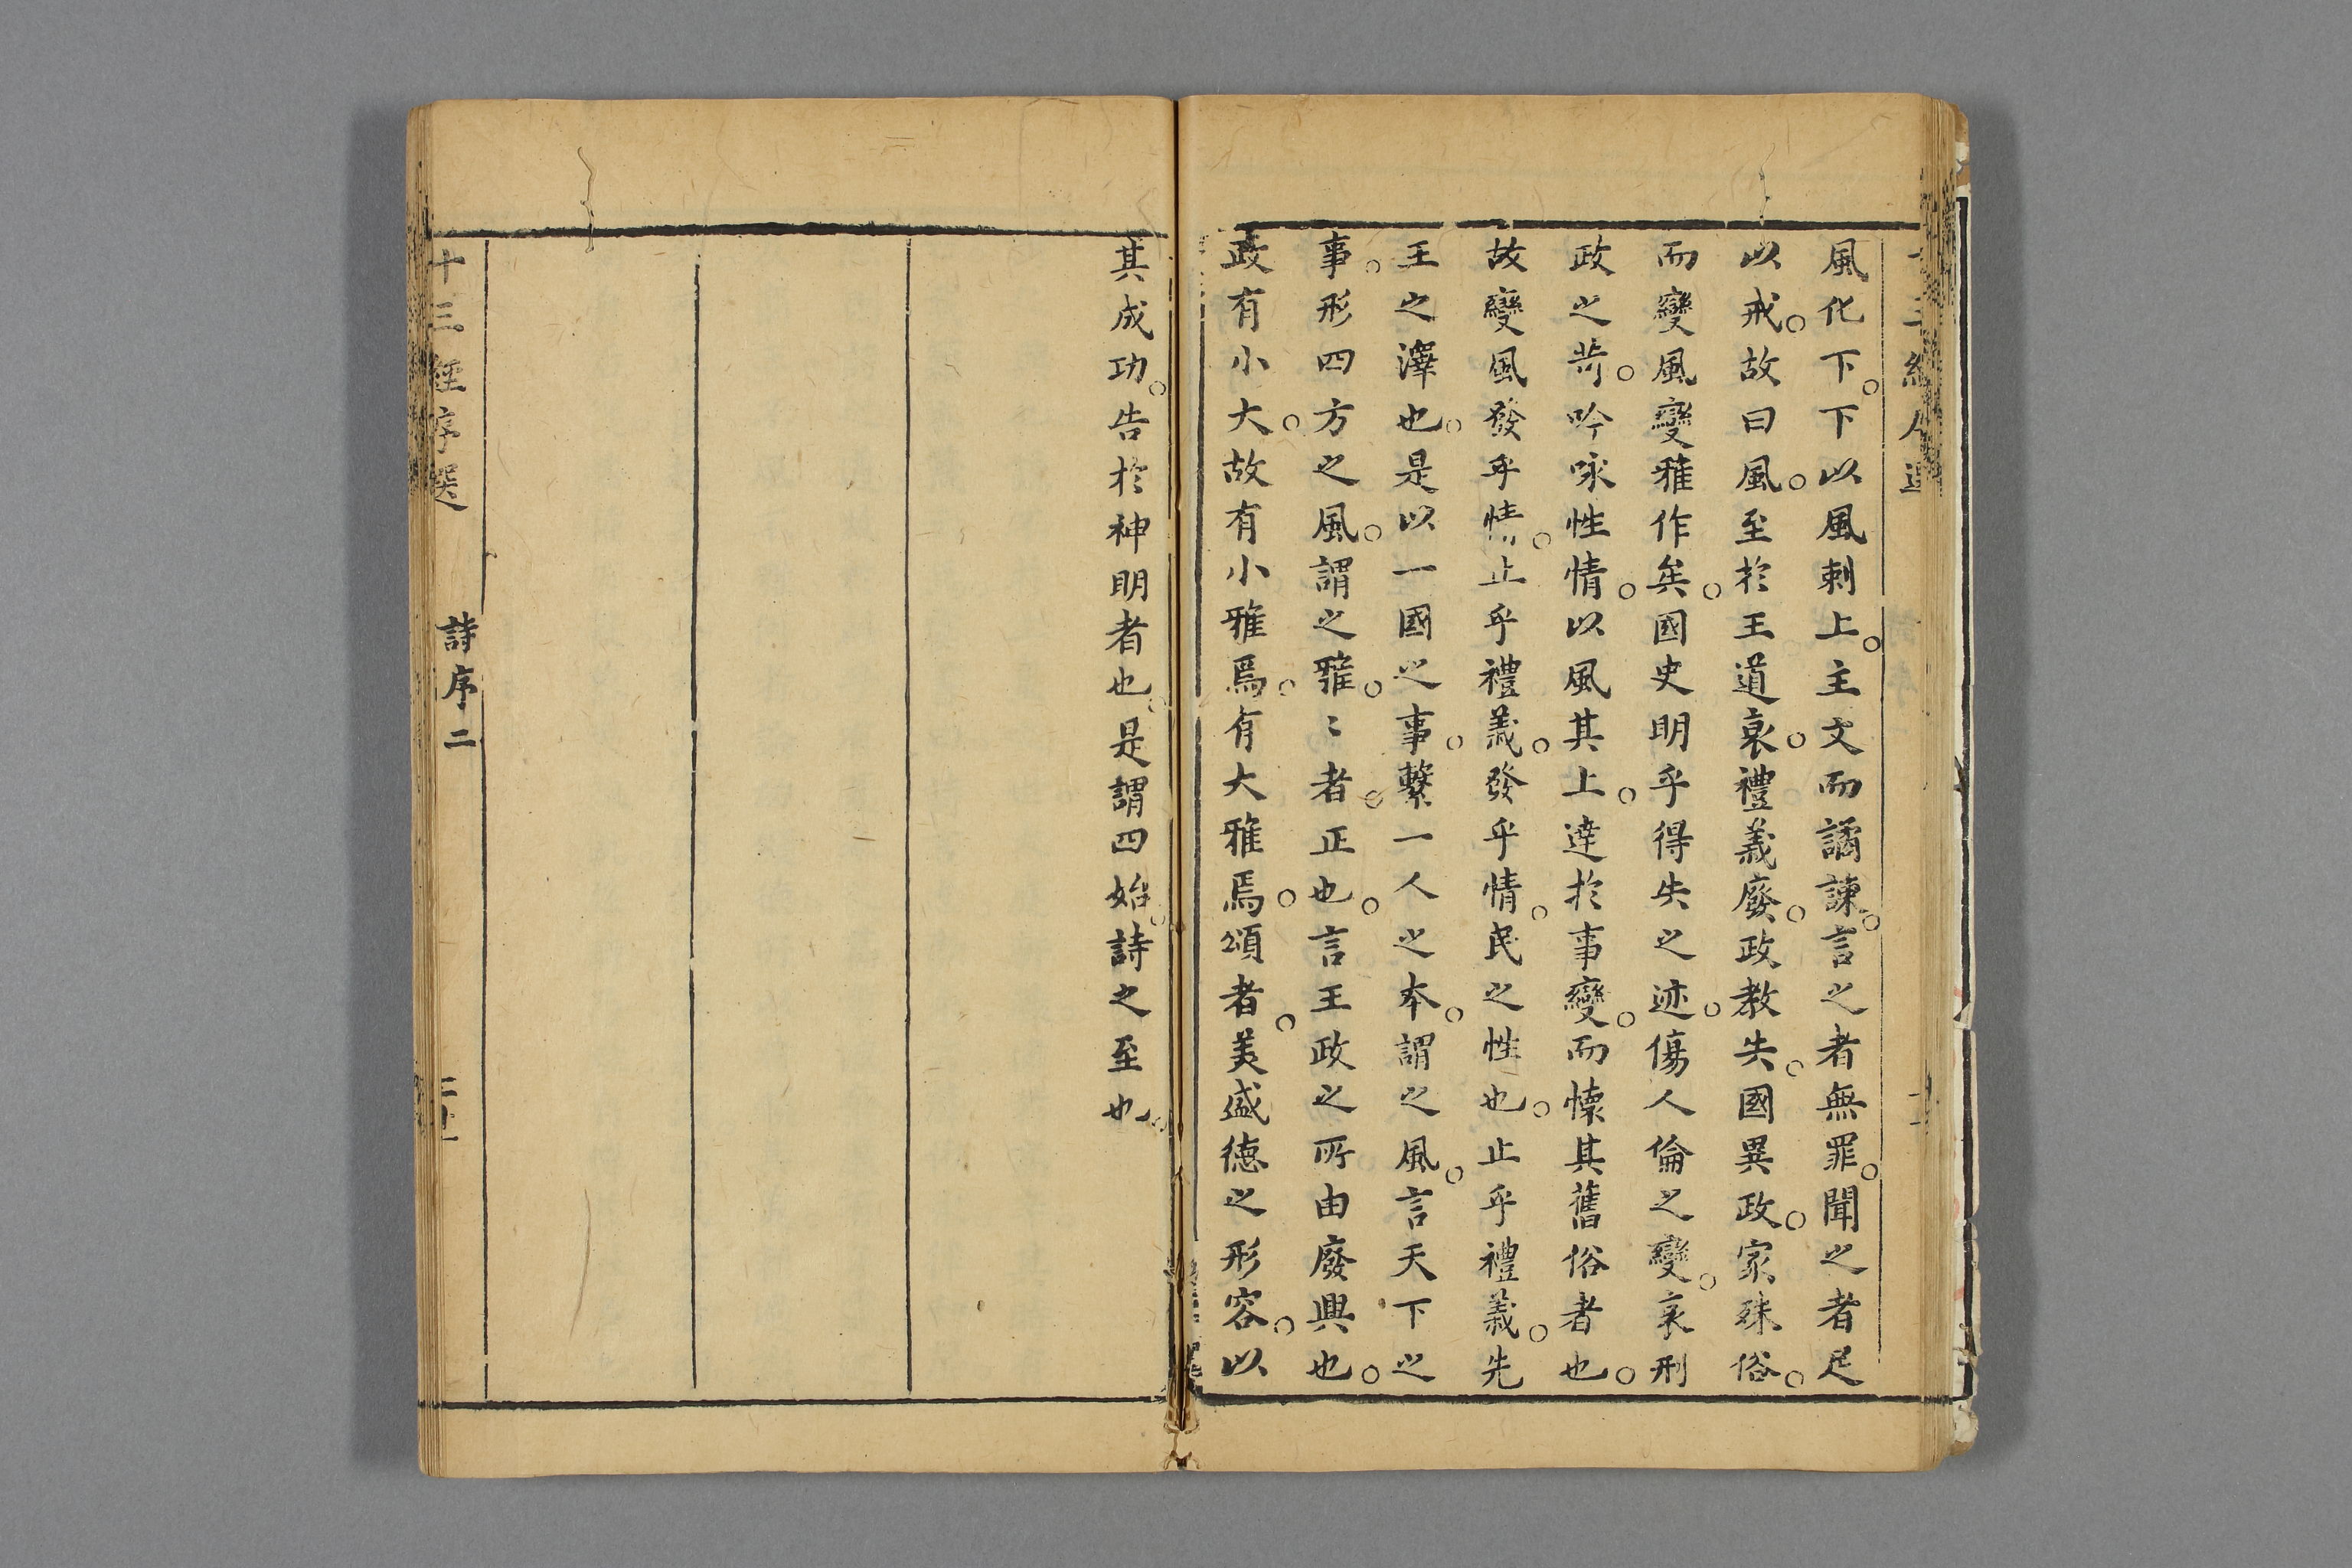 風化下。下以風刺上。主文而譎諫。言之者無罪。聞之者足
以戒。故曰風。至於王道衰。禮義廢。政教失。國異政。家殊俗。
而變風變雅作矣。國史明乎得失之迹。傷人倫之變。哀刑
政之苛。吟咏性情。以風其上。達於事變。而懷其舊俗者也。
故變風發乎情。止乎禮義。發乎情。民之性也。止乎禮義。先
王之澤也。是以一國之事。繫一人之本。謂之風。言天下之
事。形四方之風。謂之雅。〻者。正也。言王政之所由廢興也。
政有小大。故有小雅焉。有大雅焉。頌者。美盛德之形容。以
其成功。告於神明者也。是謂四始。詩之至也。
十三經序選 詩序二